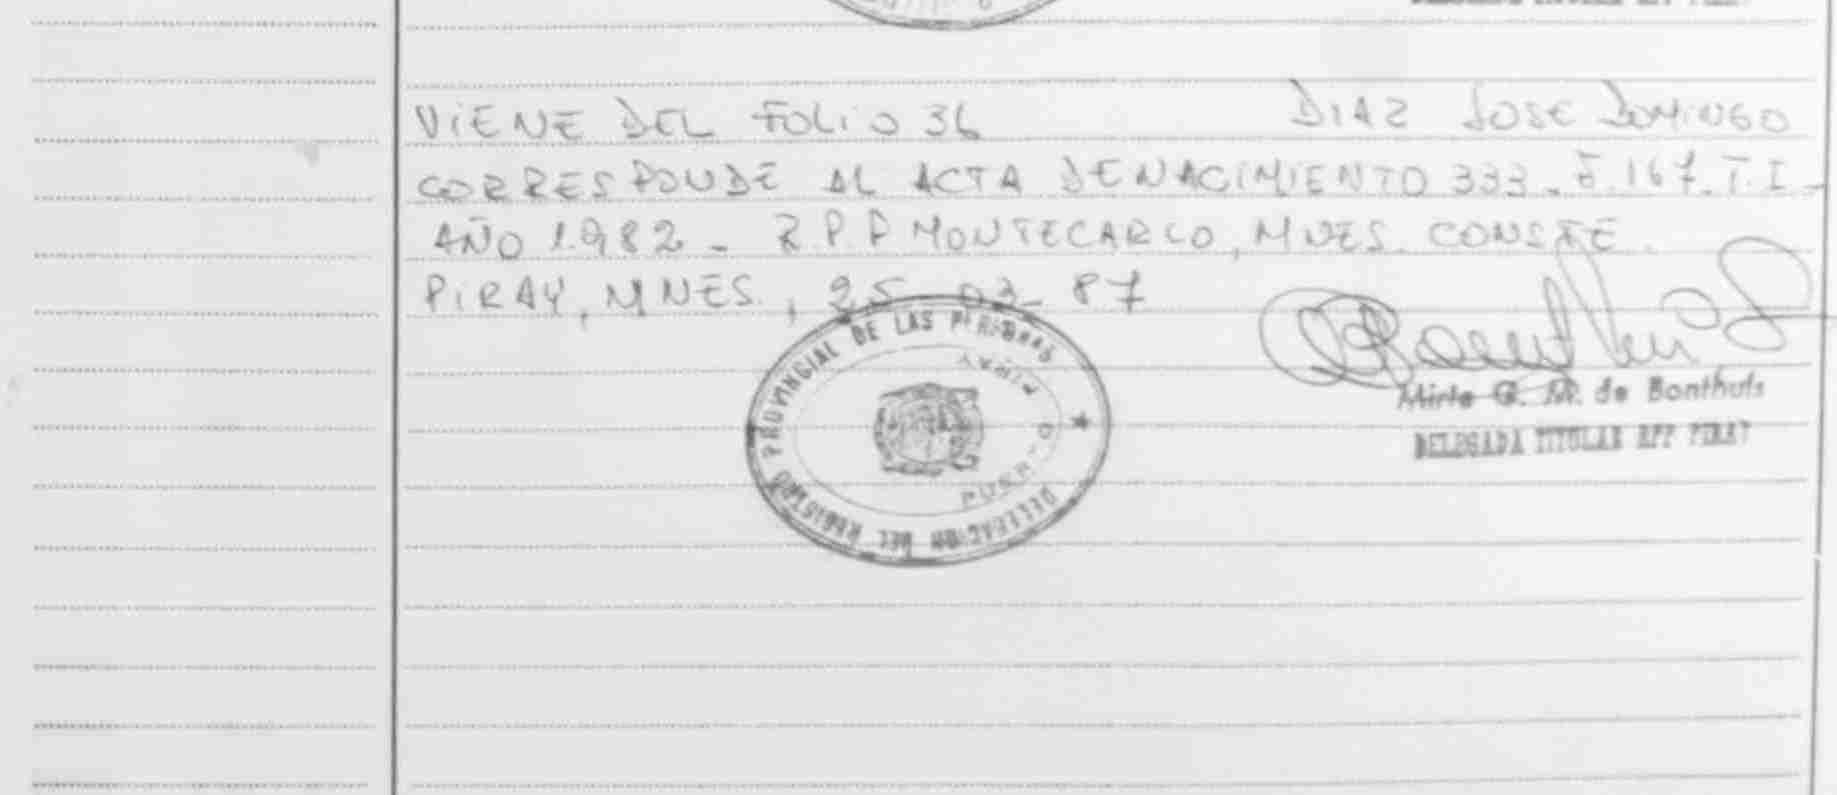 VIENE DEL FOLIO 36 DIAZ JOSE DOMINGO
CORRESPONDE AL ACTA DE NACIMIENTO 333 - F. 167. T. I -
AÑO 1.982 - R.P.P MONTECARLO, MNES. CONSTE.
PIRAY, MNES., 25-03-87
DELEGACION DEL REGISTRO PROVINCIAL DE LAS PERSONAS ★
PUERTO PIRAY
Mirta G. M. de Bonthuis
DELEGADA TITULAR RPP PIRAY